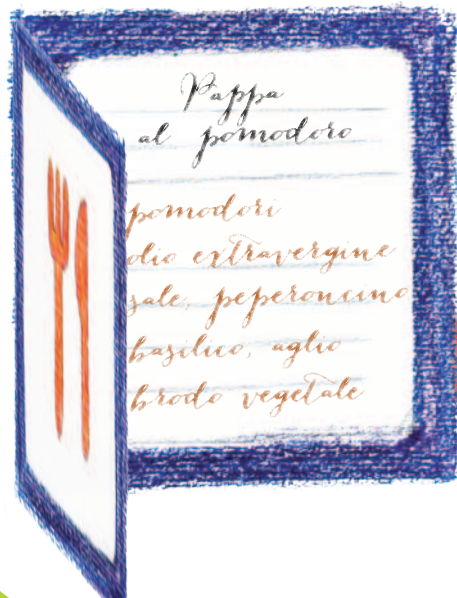 Pappa
al pomodoro
pomodori
olio extravergine
sale, peperoncino
basilico, aglio
brodo vegetale